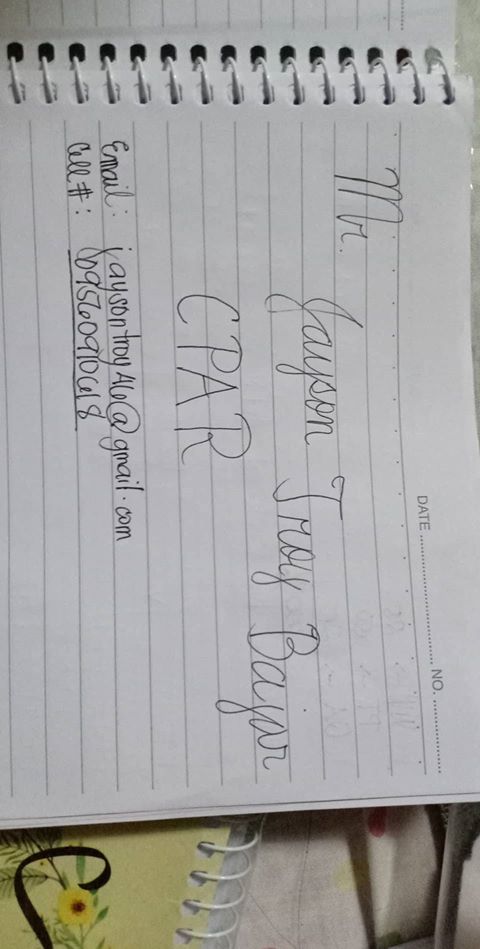 DATE ........................ NO. ................
Mr.
Jayson Troy Bajar
CPAR
Email: jaysontroy46@gmail.com
Cell #: 09560910618